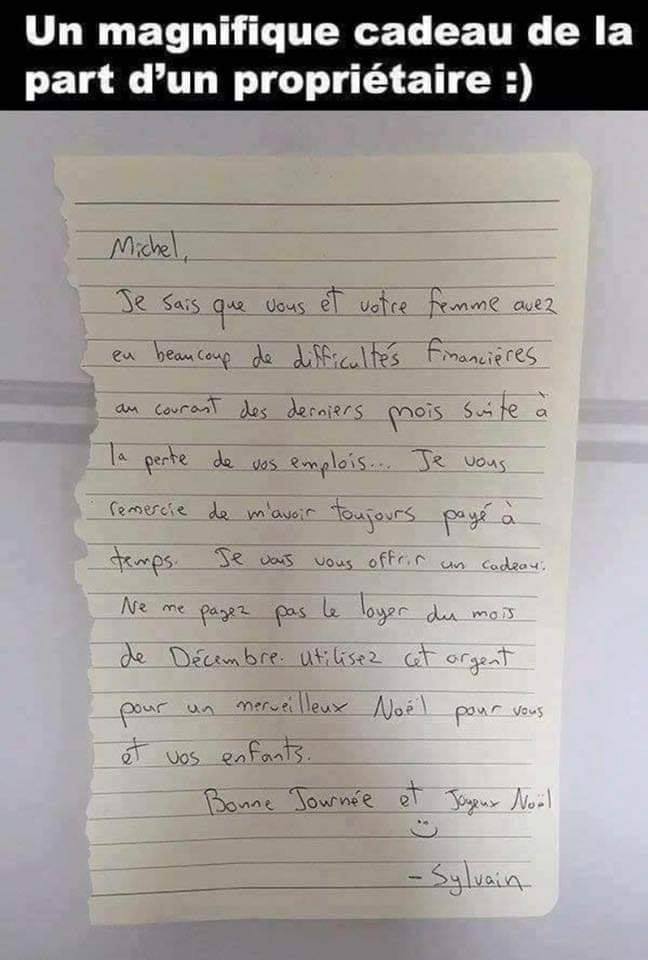 Un magnifique cadeau de la
part d'un propriétaire :)
Michel,
Je sais que vous et votre femme avez
eu beaucoup de difficultés financières
au courant des derniers mois suite à
la perte de vos emplois... Je vous
remercie de m'avoir toujours payé à
temps. Je vais vous offrir un cadeau:
Ne me payez pas le loyer du mois
de Décembre. Utilisez cet argent
pour un merveilleux Noël pour vous
et vos enfants.
Bonne Journée et Joyeux Noël
- Sylvain